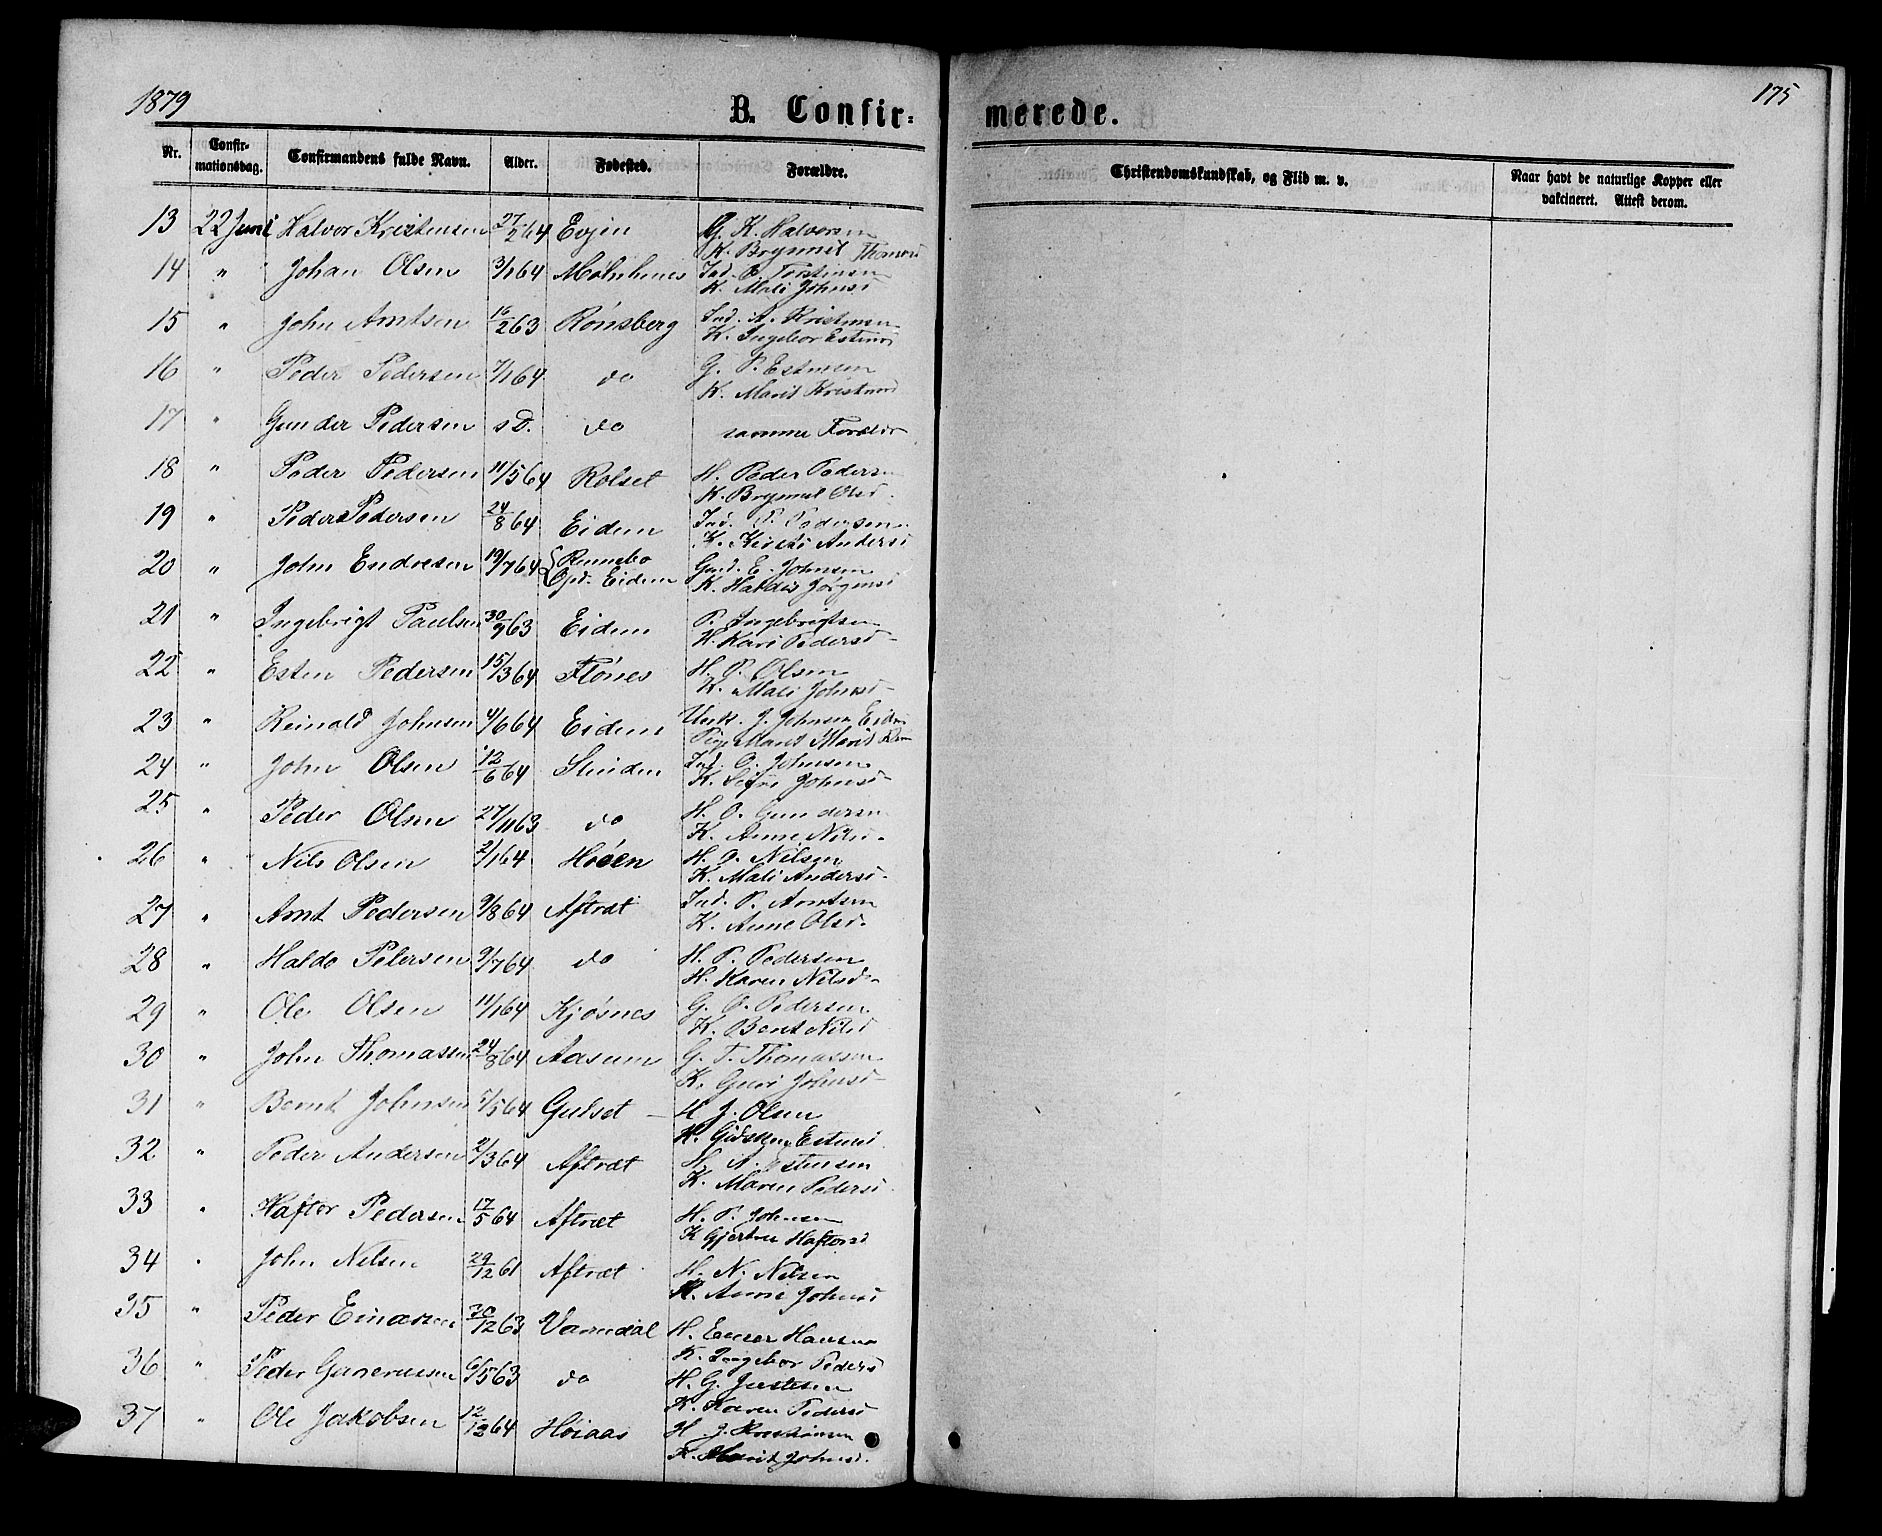 1879
B. Confir-
merede.
175
Nr. Confir-mationsdag. Confirmandens fulde Navn. Alder. Fødested. Forældre.
Christendomskundskab, og Flid m. v.
Naar havt de naturlige Kopper eller vakcineret. Attest derom.
13 22 Juni Halvor Kristensen 27/2 64 Evjen G. K. Halvorsen
K. Brynnil Thomasd
14 " Johan Olsen 3/1 64 Molnhenes Ind. O. Torstensen
K. Mali Johnsd
15 " John Arntsen 16/2 63 Rønsberg Ind. A. Kristensen
K. Ingebor Estensd
16 " Peder Pedersen 7/1 64 do G. P. Estensen
K. Marit Kristensd
17 " Gunder Pedersen s D. do samme Forældre
18 " Peder Pedersen 11/5 64 Rolset H. Peder Pedersen
K. Brynnil Olsd.
19 " Peder Pedersen 24/8 64 Eidem Ind. P. Pedersen
K. Kirsti Andersd
20 " John Endresen 19/7 64 Rennebo Gmd. E. Johnsen
Opd. Eidem K. Haldis Jørgensd
21 " Ingebrigt Paulsen 30/9 63 Eidem P. Ingebrigtsen
H. Kari Pedersd
22 " Esten Pedersen 15/3 64 Flønes H. P. Olsen
K. Mali Johnsd
23 " Reinald Johnsen 4/6 64 Eidem Unk. J. Johnsen Eidem
Pige Marit
24 " John Olsen 12/6 64 Slinden Ind. O. Johnsen
K. Sigri Johnsd
25 " Peder Olsen 27/11 63 do H. O. Gundersen
K. Anne Nilsd.
26 " Nils Olsen 2/1 64 Høien H. O. Nilsen
K. Mali Andersd.
27 " Arnt Pedersen 9/8 64 Aftræt Ind. P. Arntsen
K. Anne Olsd.
28 " Haldo Petersen 9/7 64 do H. P. Pedersen
H. Karen Nilsd
29 " Ole Olsen 11/1 64 Kjøsnes G. O. Pedersen
K. Berit Nilsd
30 " John Thomassen 24/8 64 Aasum G. T. Thomassen
K. Guri Johnsd
31 " Bernt Johnsen 7/5 64 Gulset H J. Olsen
K. Gidsken Estensd
32 " Peder Andersen 2/3 64 Aftræt H. A. Estensen
K. Maren Pedersd.
33 " Haftor Pedersen 17/5 64 Aftræt H. P. Johnsen
K Gjertru Haftorsd
34 " John Nilsen 29/12 61 Aftræt H. N. Nilsen
K. Anne Johnsd
35 " Peder Einarsen 30/12 63 Varmdal H. Einar Hansen
K. Ingebor Pedersd
36 " Peder Gunerussen 6/5 63 do H. G. Justesen
K. Karen Pedersd
37 " Ole Jakobsen 12/12 64 Høiaas H. J. Kristiansen
K. Marit Johnsd.